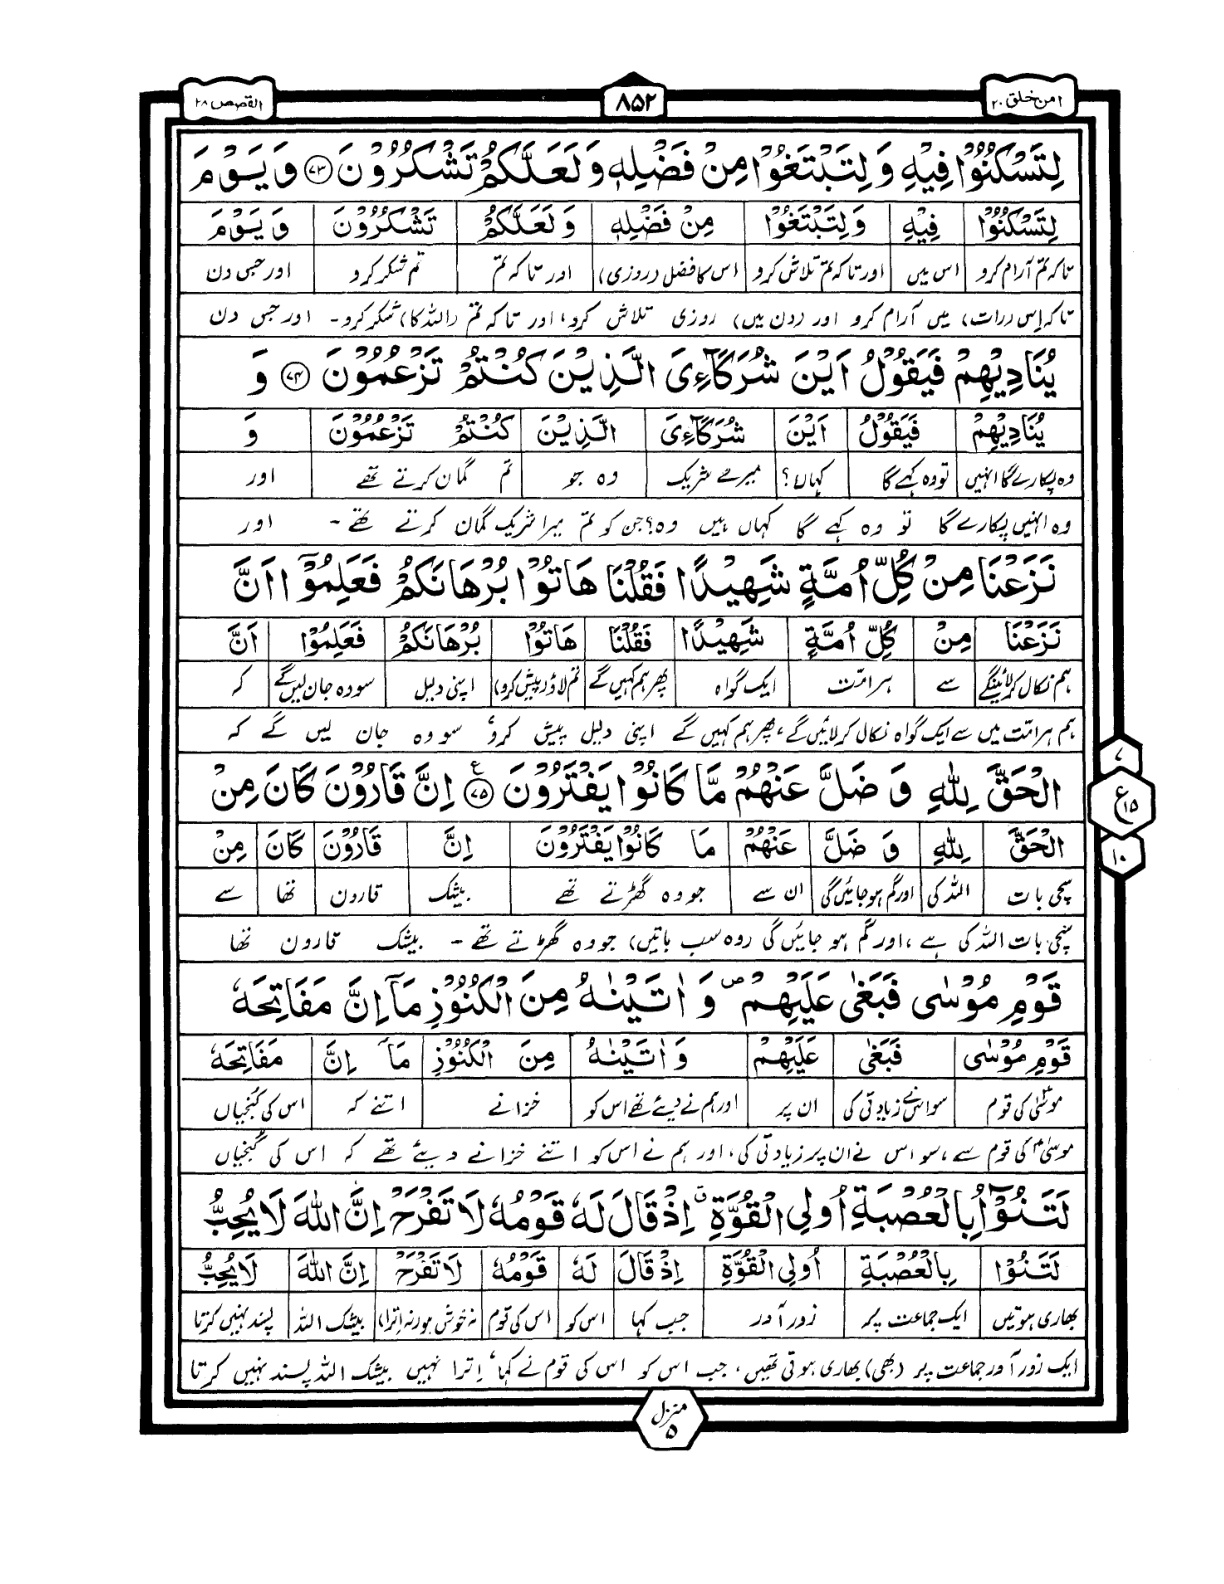 امن خلق ۲۰
۸۵۲
القصص ۲۸
لِتَسْكُنُوْا فِيْهِ وَ لِتَبْتَغُوْا مِنْ فَضْلِهٖ وَ لَعَلَّكُمْ تَشْكُرُوْنَ ﴿۷۳﴾ وَ يَوْمَ
لِتَسْكُنُوْا فِيْهِ وَ لِتَبْتَغُوْا مِنْ فَضْلِهٖ وَ لَعَلَّكُمْ تَشْكُرُوْنَ وَ يَوْمَ
تاکہ تم آرام کرو اس میں اور تاکہ تم تلاش کرو اس کا فضل (روزی) اور تاکہ تم تم شکر کرو اور جس دن
تاکہ اس (رات) میں آرام کرو اور (دن میں) روزی تلاش کرو، اور تاکہ تم (اللہ کا) شکر کرو۔ اور جس دن
يُنَادِيْهِمْ فَيَقُوْلُ اَيْنَ شُرَكَآءِىَ الَّذِيْنَ كُنْتُمْ تَزْعُمُوْنَ ﴿۷۴﴾ وَ
يُنَادِيْهِمْ فَيَقُوْلُ اَيْنَ شُرَكَآءِىَ الَّذِيْنَ كُنْتُمْ تَزْعُمُوْنَ وَ
وہ پکارے گا انہیں تو وہ کہے گا کہاں؟ میرے شریک وہ جو تم گمان کرتے تھے اور
وہ انہیں پکارے گا تو وہ کہے گا کہاں ہیں وہ؟ جن کو تم میرا شریک گمان کرتے تھے۔ اور
نَزَعْنَا مِنْ كُلِّ اُمَّةٍ شَهِيْدًا فَقُلْنَا هَاتُوْا بُرْهَانَكُمْ فَعَلِمُوْٓا اَنَّ
نَزَعْنَا مِنْ كُلِّ اُمَّةٍ شَهِيْدًا فَقُلْنَا هَاتُوْا بُرْهَانَكُمْ فَعَلِمُوْا اَنَّ
ہم نکال کر لائینگے سے ہر امت ایک گواہ پھر ہم کہیں گے تم لاؤ (پیش کرو) اپنی دلیل سو وہ جان لیں گے کہ
ہم ہر امت میں سے ایک گواہ نکال کر لائیں گے، پھر ہم کہیں گے اپنی دلیل پیش کرو، سو وہ جان لیں گے کہ
الْحَقَّ لِلّٰهِ وَ ضَلَّ عَنْهُمْ مَّا كَانُوْا يَفْتَرُوْنَ ﴿۷۵﴾ ع اِنَّ قَارُوْنَ كَانَ مِنْ
۷
ع ۱۵
۱۰
الْحَقَّ لِلّٰهِ وَ ضَلَّ عَنْهُمْ مَا كَانُوْا يَفْتَرُوْنَ اِنَّ قَارُوْنَ كَانَ مِنْ
سچی بات اللہ کی اور گم ہو جائیں گی ان سے جو وہ گھڑتے تھے بیشک قارون تھا سے
سچی بات اللہ کی ہے، اور گم ہو جائیں گی (وہ سب باتیں) جو وہ گھڑتے تھے۔ بیشک قارون تھا
قَوْمِ مُوْسٰى فَبَغٰى عَلَيْهِمْ ص وَ اٰتَيْنٰهُ مِنَ الْكُنُوْزِ مَآ اِنَّ مَفَاتِحَهٗ
قَوْمِ مُوْسٰى فَبَغٰى عَلَيْهِمْ وَ اٰتَيْنٰهُ مِنَ الْكُنُوْزِ مَآ اِنَّ مَفَاتِحَهٗ
موسیٰ کی قوم سو اس نے زیادتی کی ان پر اور ہم نے دیے تھے اس کو خزانے اتنے کہ اس کی کنجیاں
موسیٰؑ کی قوم سے، سو اس نے ان پر زیادتی کی، اور ہم نے اس کو اتنے خزانے دیئے تھے کہ اس کی کنجیاں
لَتَنُوْٓاُ بِالْعُصْبَةِ اُولِى الْقُوَّةِ اِذْ قَالَ لَهٗ قَوْمُهٗ لَا تَفْرَحْ اِنَّ اللّٰهَ لَا يُحِبُّ
لَتَنُوْا بِالْعُصْبَةِ اُولِى الْقُوَّةِ اِذْ قَالَ لَهٗ قَوْمُهٗ لَا تَفْرَحْ اِنَّ اللّٰهَ لَا يُحِبُّ
بھاری ہوتیں ایک جماعت پر زور آور جب کہا اس کو اس کی قوم نہ خوش ہو (نہ اترا) بیشک اللہ پسند نہیں کرتا
ایک زور آور جماعت پر (بھی) بھاری ہوتی تھیں، جب اس کو اس کی قوم نے کہا، اترا نہیں بیشک اللہ پسند نہیں کرتا
منزل ۵